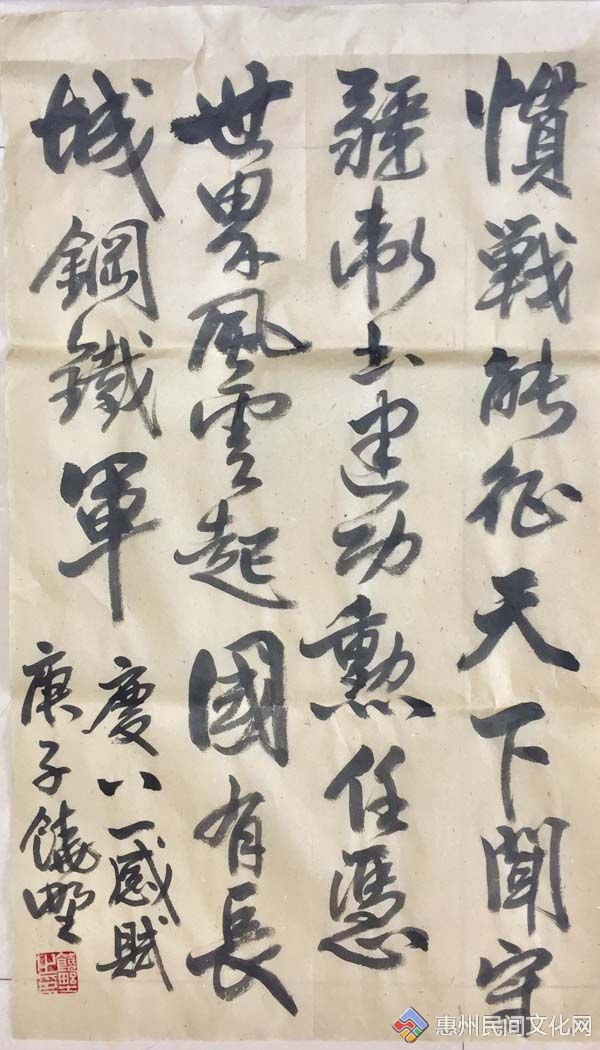 慣戰能征天下聞守
疆衛土建功勳任憑
世界風雲起國有長
城鋼鐵軍
慶八一感賦
庚子饒野
惠州民间文化网